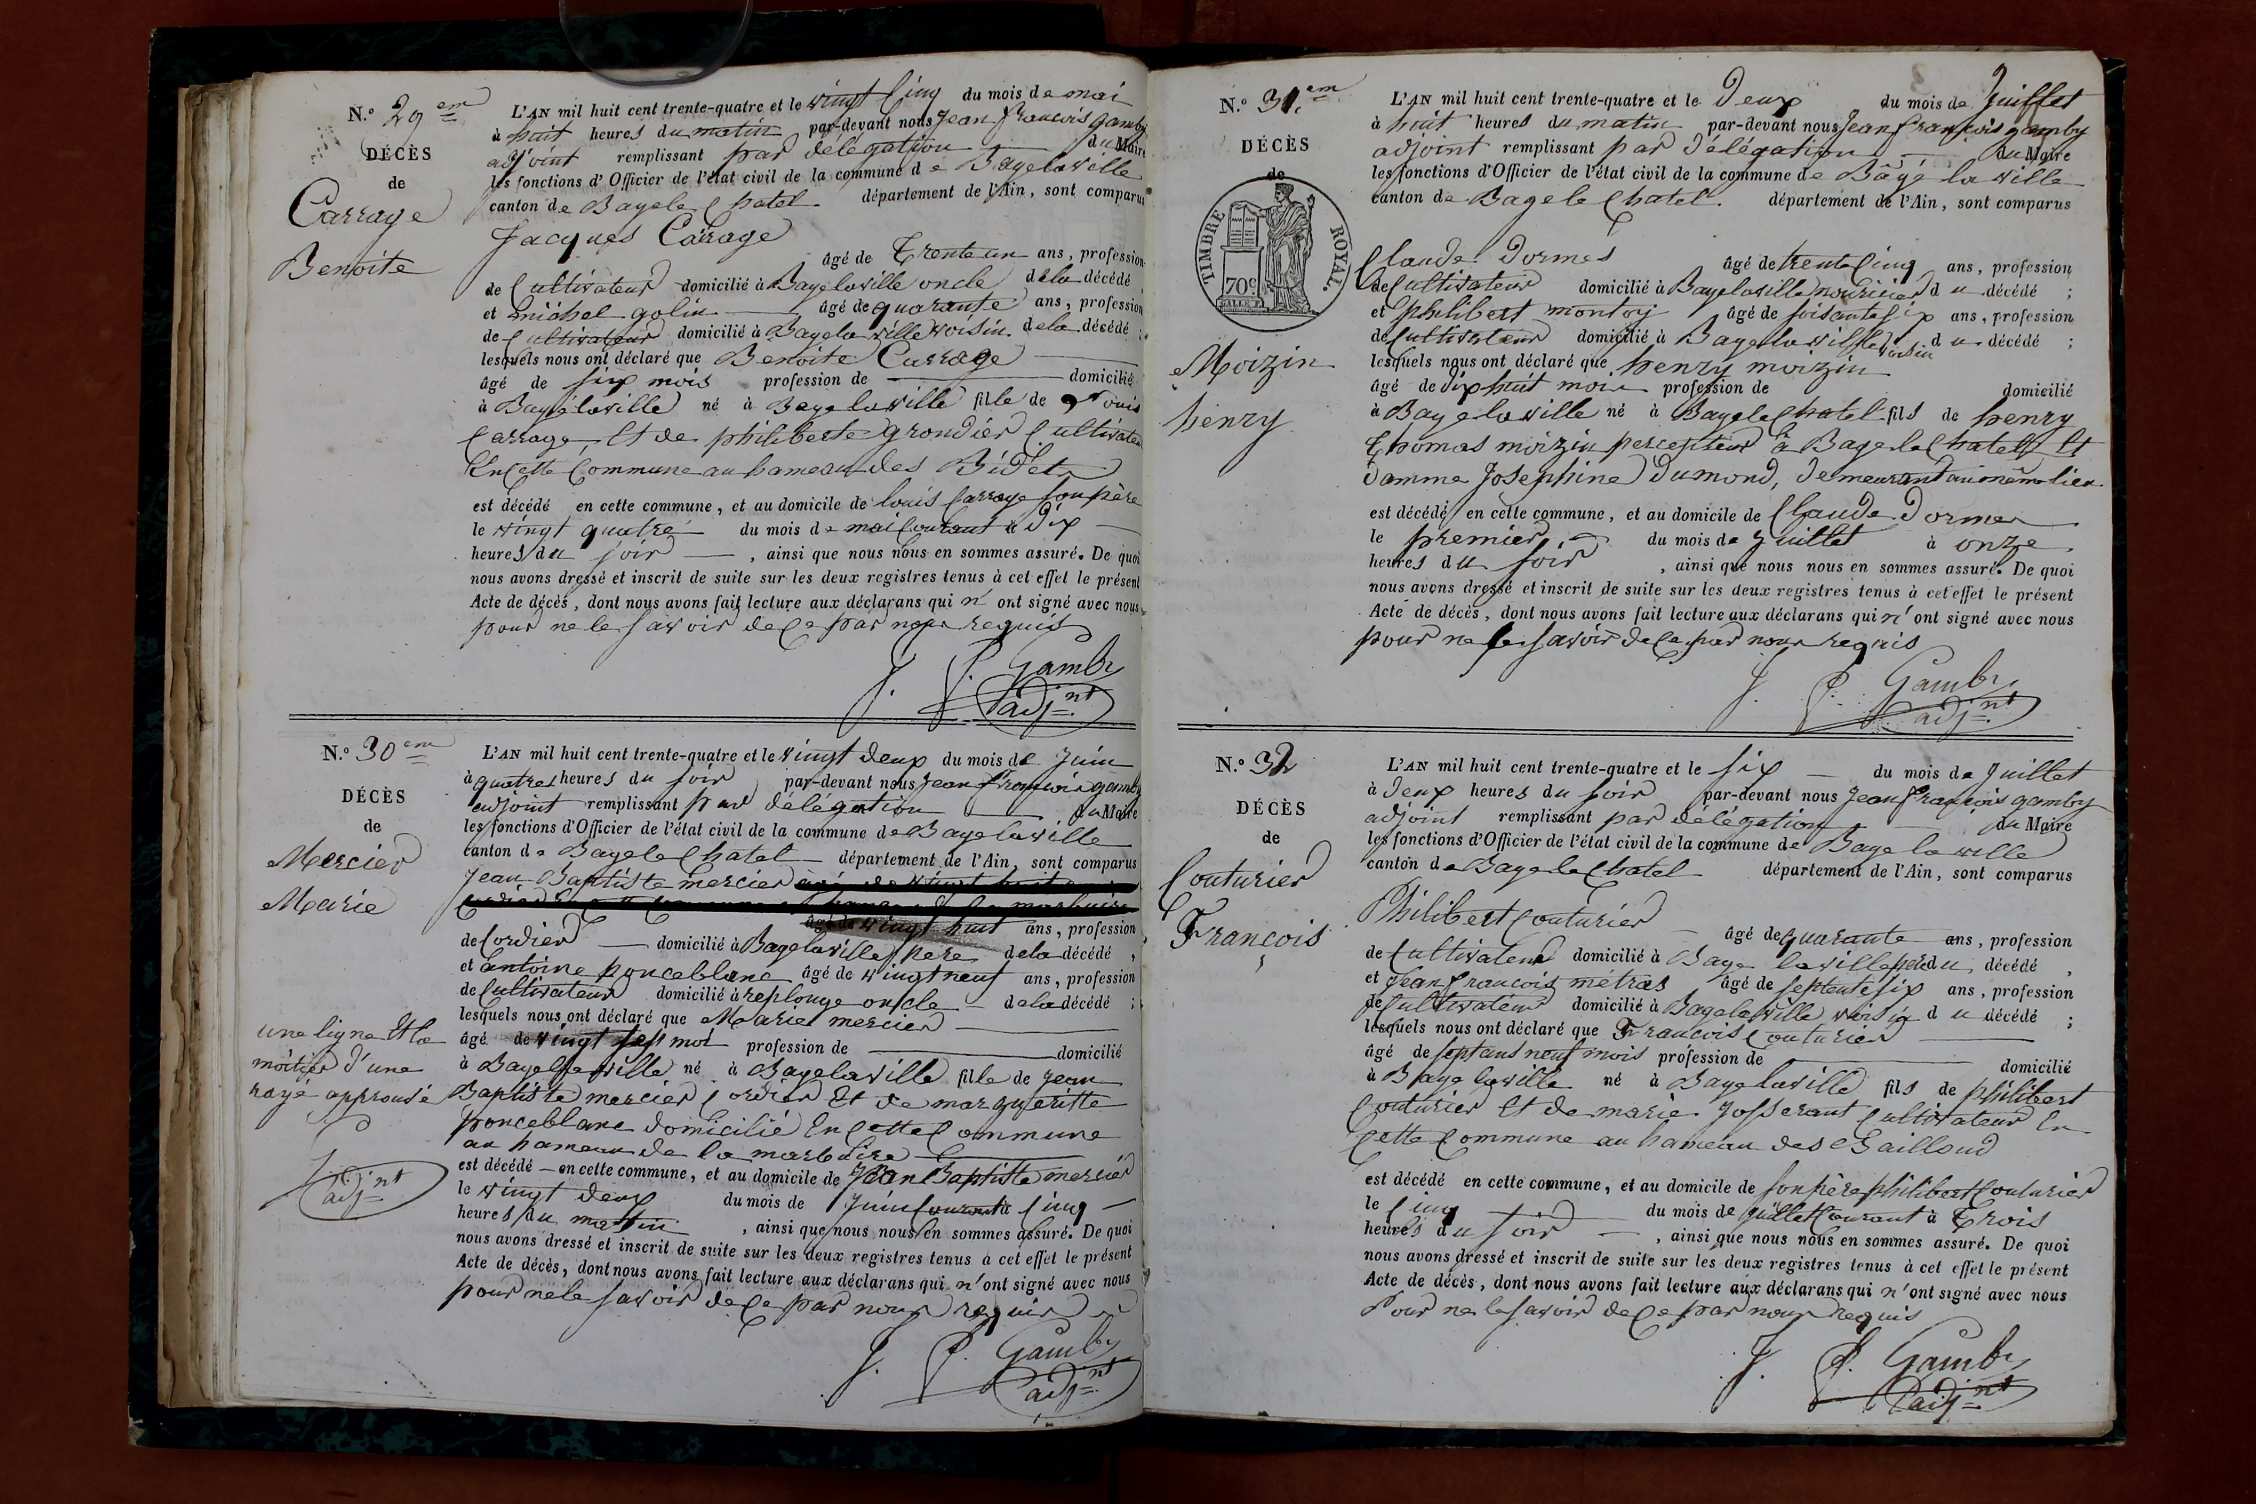 N.º 29em
DÉCÈS
de
Carrage
Benoite
L'AN mil huit cent trente-quatre et le vingt Cinq du mois de mai
à huit heures du matin par-devant nous Jean françois gamby
adjoint remplissant par délégation du Maire
les fonctions d'Officier de l'état civil de la commune de Bagelaville
canton de Bagele Chatel département de l'Ain, sont comparus
Jacques Carrage
âgé de Trente un ans, profession
de Cultivateur domicilié à Bagelaville oncle dela décédé
et michel golin âgé de quarante ans, profession
de Cultivateur domicilié à Bagelaville voisin dela décédé ;
lesquels nous ont déclaré que Benoite Carrage
âgé de six mois profession de domicilié
à Bagelaville né à Bagelaville fille de Louis
Carrage, Et de philiberte grondier Cultivateur
En Cette Commune au hameau des Bidet
est décédé en cette commune, et au domicile de louis Carrage son père
le vingt quatre du mois de mai Courant à dix
heures du soir, ainsi que nous nous en sommes assuré. De quoi
nous avons dressé et inscrit de suite sur les deux registres tenus à cet effet le présent
Acte de décès, dont nous avons fait lecture aux déclarans qui n' ont signé avec nous
pour ne le savoir de Ce par nous requis
J. f. Gamby
adjnt
N.º 30em
DÉCÈS
de
Mercier
Marie
une ligne Et la
moitier d'une
rayé approuvé
adjnt
L'AN mil huit cent trente-quatre et le vingt deux du mois de Juin
à quatres heures du soir par-devant nous Jean françois gamby
adjoint remplissant par délégation du Maire
les fonctions d'Officier de l'état civil de la commune de Bagelaville
canton de Bagele Chatel département de l'Ain, sont comparus
Jean Baptiste mercier
âgé de vingt huit ans, profession
de Cordier domicilié à Bagelaville père dela décédé,
et antoine ponceblanc âgé de vingt neuf ans, profession
de Cultivateur domicilié à replonge oncle dela décédé ;
lesquels nous ont déclaré que Marie mercier
âgé de vingt sept moi profession de domicilié
à Bagelaville né à Bagelaville fille de Jean
Baptiste mercier Cordier Et de marguerite
ponceblanc domicilié En Cette Commune
au hameau de la marbuire
est décédé en cette commune, et au domicile de Jean Baptiste mercier
le vingt deux du mois de Juin Courant à Cinq
heures du matin, ainsi que nous nous en sommes assuré. De quoi
nous avons dressé et inscrit de suite sur les deux registres tenus à cet effet le présent
Acte de décès, dont nous avons fait lecture aux déclarans qui n' ont signé avec nous
pour ne le savoir de Ce par nous requis
J. f. Gamby
adjnt
N.º 31.em
DÉCÈS
de
TIMBRE ROYAL
70c
Moizin
henry
L'AN mil huit cent trente-quatre et le Deux du mois de Juillet
à huit heures du matin par-devant nous Jean françois gamby
adjoint remplissant par Délégation du Maire
les fonctions d'Officier de l'état civil de la commune de Bâgé la ville
canton de Bagele Chatel. département de l'Ain, sont comparus
Claude Dormes âgé de trente Cinq ans, profession
de Cultivateur domicilié à Bagelaville nouricier du décédé ;
et philibert montoy âgé de soisante six ans, profession
de Cultivateur domicilié à Bagelaville voisin du décédé ;
lesquels nous ont déclaré que henry moizin
âgé de dix huit mois profession de domicilié
à Bagelaville né à Bagele Chatel fils de henry
Thomas moizin percepteur à Bagele Chatel Et
Damme Josephine Dumond, Demeurant au même lieu
est décédé en cette commune, et au domicile de Claude Dormes
le premier du mois de Juillet à onze
heures du soir, ainsi que nous nous en sommes assuré. De quoi
nous avons dressé et inscrit de suite sur les deux registres tenus à cet effet le présent
Acte de décès, dont nous avons fait lecture aux déclarans qui n' ont signé avec nous
pour ne le savoir de Ce par nous requis
J. f. Gamby
adjnt
N.º 32
DÉCÈS
de
Couturier
François
L'AN mil huit cent trente-quatre et le six du mois de Juillet
à deux heures du soir par-devant nous Jean françois gamby
adjoint remplissant par délégation du Maire
les fonctions d'Officier de l'état civil de la commune de Bage la ville
canton de Bagele Chatel département de l'Ain, sont comparus
Philibert Couturier
âgé de quarante ans, profession
de Cultivateur domicilié à Bage laville père du décédé,
et Jean françois métras âgé de septente six ans, profession
de Cultivateur domicilié à Bagelaville voisin du décédé ;
lesquels nous ont déclaré que François Couturier
âgé de sept ans neuf mois profession de domicilié
à Bagelaville né à Bagelaville fils de philibert
Couturier Et de marie Josserant Cultivateur En
Cette Commune au hameau des Gailloud
est décédé en cette commune, et au domicile de son père philibert Couturier
le Cinq du mois de Juillet Courant à Trois
heures du soir, ainsi que nous nous en sommes assuré. De quoi
nous avons dressé et inscrit de suite sur les deux registres tenus à cet effet le présent
Acte de décès, dont nous avons fait lecture aux déclarans qui n' ont signé avec nous
Pour ne le savoir de Ce par nous requis
J. f. Gamby
adjnt